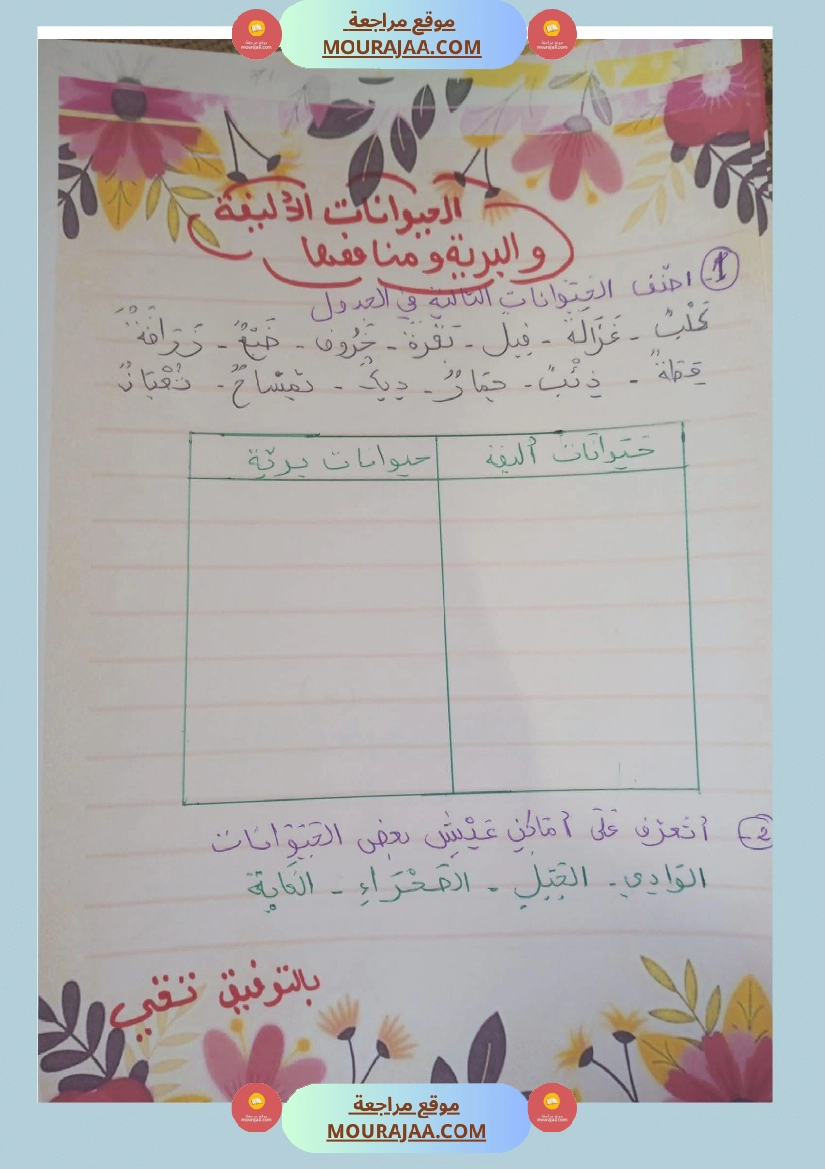 موقع مراجعة
MOURAJAA.COM
الحيوانات الأليفة
و البرية و منافعها
1- أصنف الحَيَوانات التالية في الجدول
كَلْبٌ - غَزَالَة - فِيل - بَقَرَة - خَرُوف - ضَبْعٌ - زَرَافَةٌ
قِطَّةٌ - ذِئْبٌ - حِمَارٌ - دِيكٌ - تِمْسَاحٌ - ثُعْبَانٌ
حَيَوَانَات أليفة
حيوانات بريّة
2- أتعرّف عَلَى أمَاكِنِ عَيْشِ بعض الحَيَوَانَات
الوَادِي - الجَبَلِ - الصَّحْرَاءِ - الغَابَة
بالتوفيق
موقع مراجعة
MOURAJAA.COM